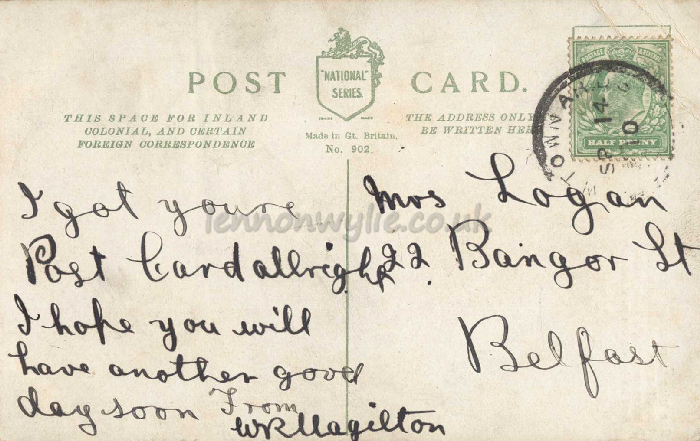 POST CARD.
"NATIONAL"
SERIES.
THIS SPACE FOR INLAND
COLONIAL, AND CERTAIN
FOREIGN CORRESPONDENCE
Made in Gt. Britain.
No. 902.
THE ADDRESS ONLY
BE WRITTEN HERE
HALFPENNY
NEWTOWNARDS
14
10
I got yours
Post Card allright
I hope you will
have another good
day soon From
WR Magilton
Mrs Logan
22 Bangor St
Belfast
lennonwylie.co.uk